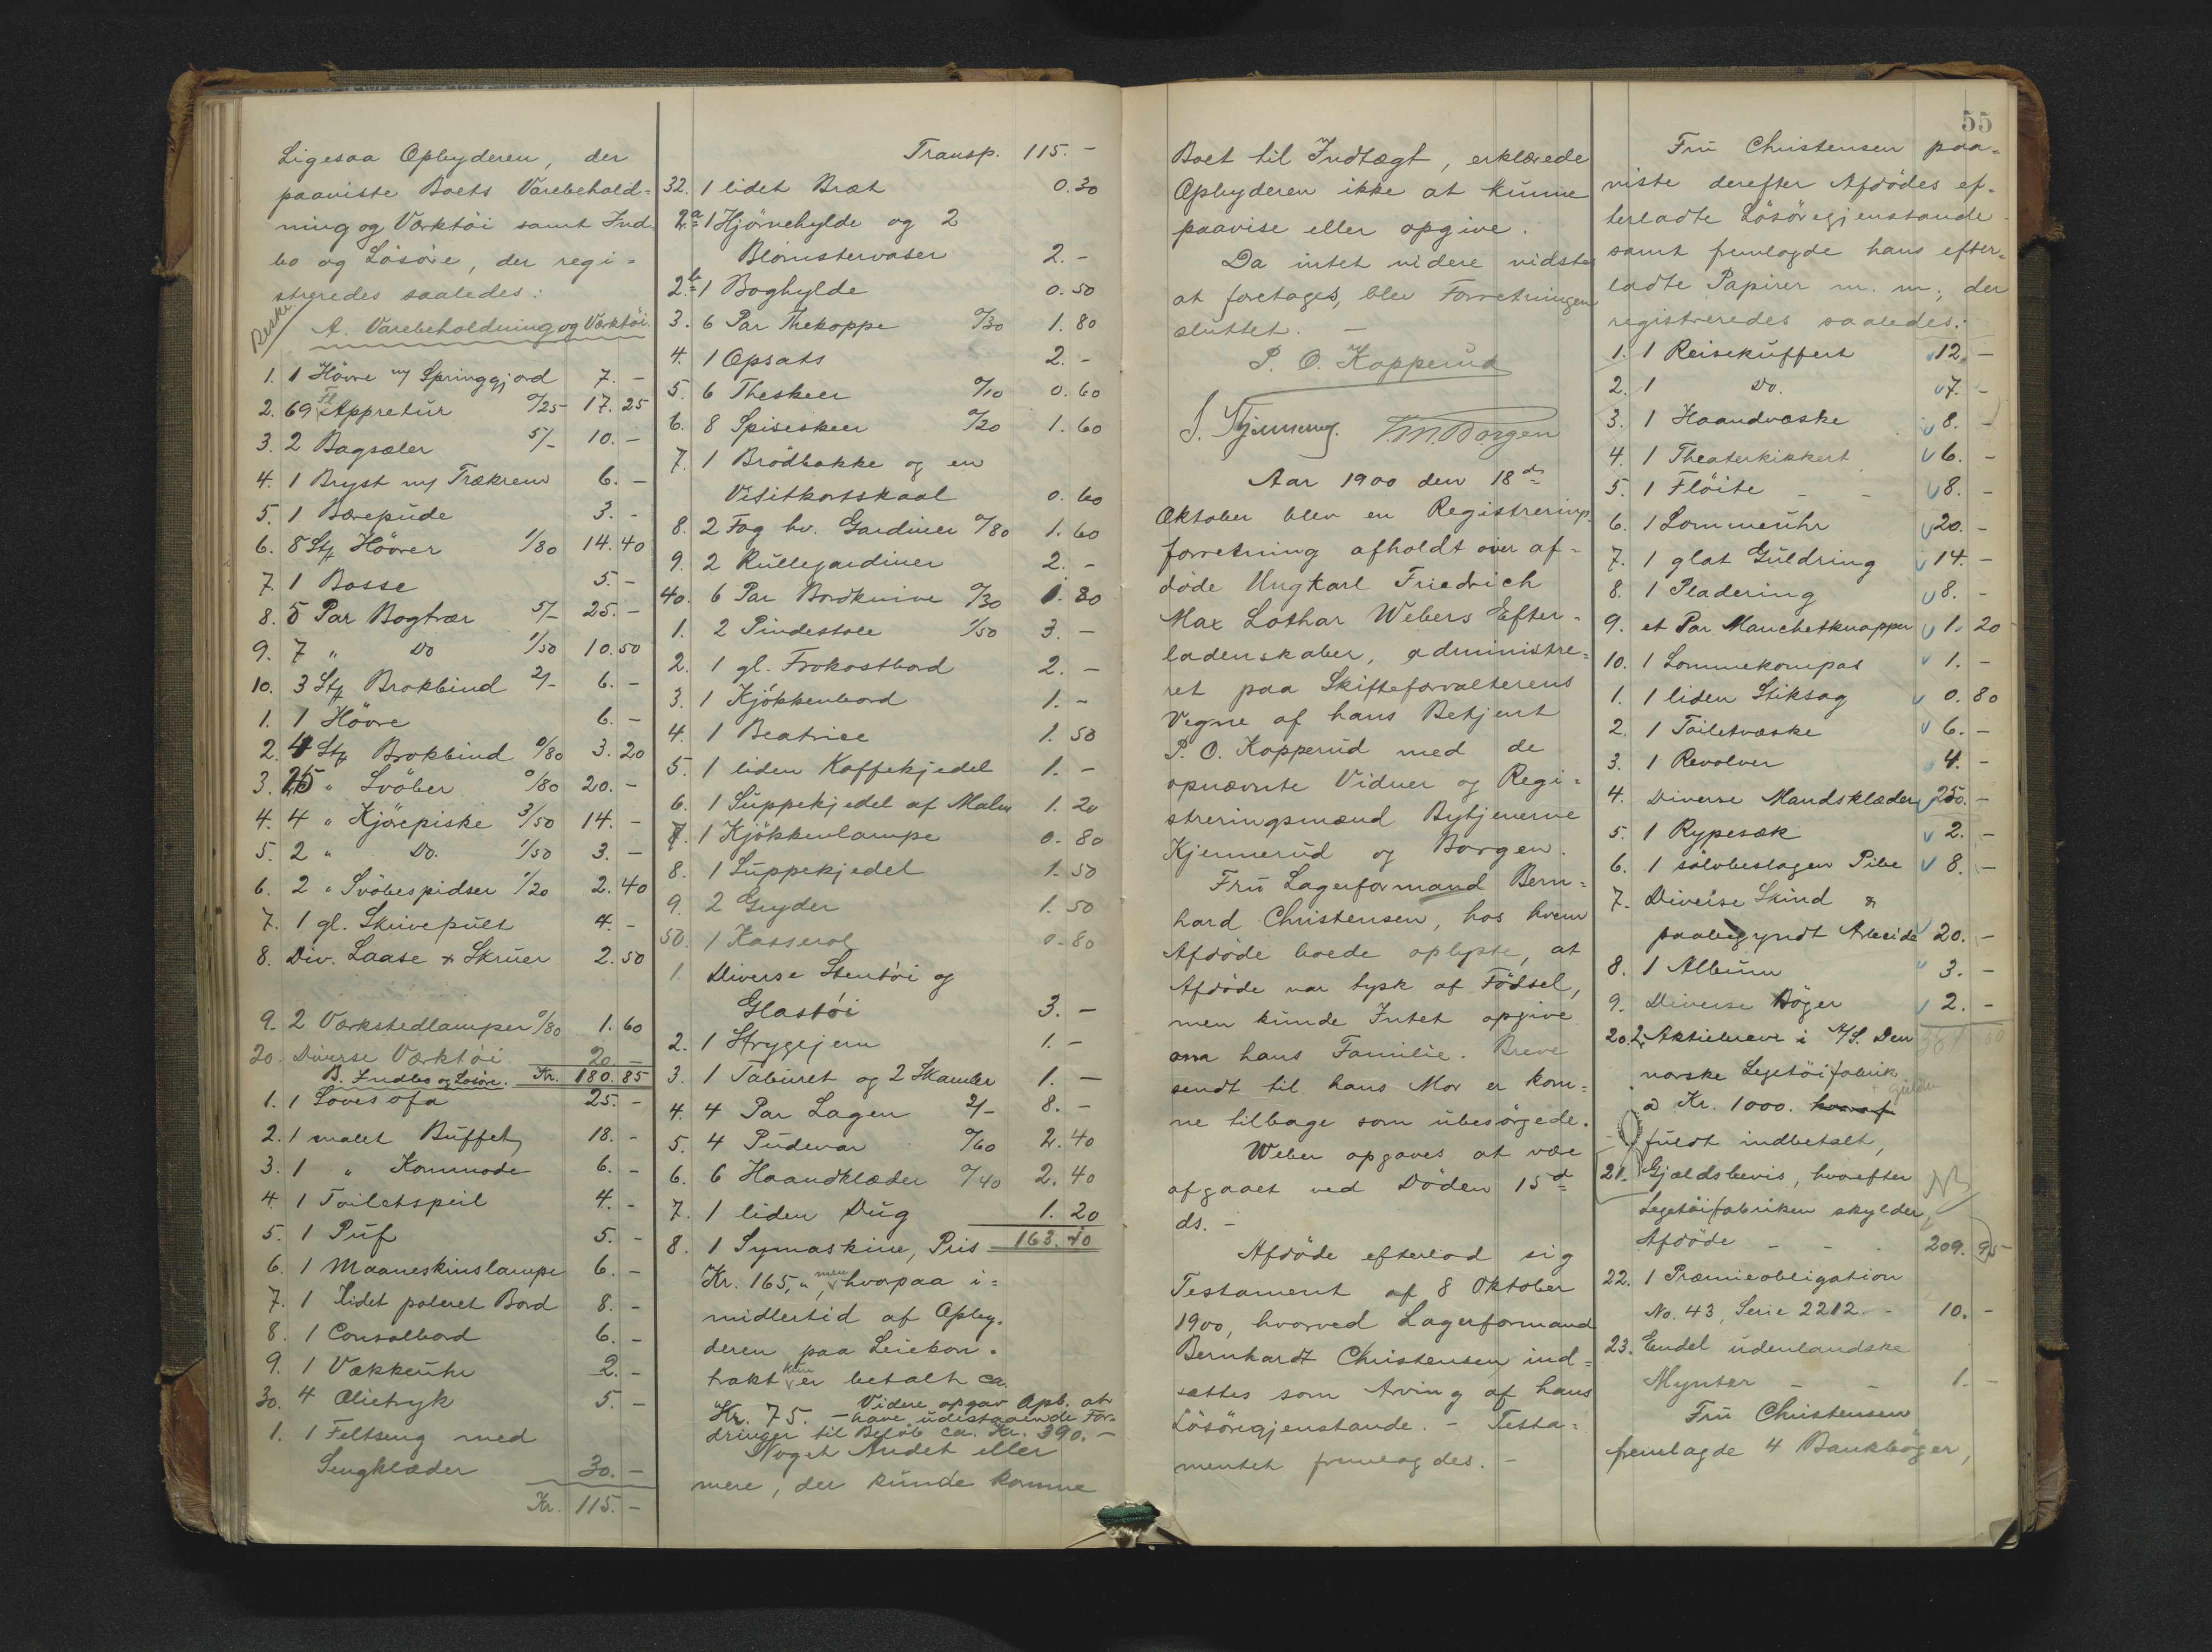 Ligesaa Opbyderen, der
paaviste Boets Varebehold=
ning og Værktöi samt Ind=
bo og Lösöre, der regi=
streredes saaledes:
A. Varebeholdning og Værktöi.
1. 1 Hövre m/ Springgjord 7. -
2. 69 Fl Appretur 0/25 17.25
3. 2 Bagsæler 5/- 10. -
4. 1 Bryst m/ Trækrem 6. -
5. 1 Bærepude 3. -
6. 8 Stk Hövrer 1/80 14.40
7. 1 Bosse 5. -
8. 5 Par Bogtrær 5/- 25. -
9. 7 " Do 1/50 10.50
10. 3 Stk Brokbind 2/- 6. -
1. 1 Hövre 6. -
2. 4 Stk Brokbind 0/80 3.20
3. 25 " Svöber 0/80 20. -
4. 4 " Kjörepiske 3/50 14. -
5. 2 " Do. 1/50 3. -
6. 2 " Svöbespidser 1/20 2.40
7. 1 gl. Skrivepult 4. -
8. Div. Laase & Skruer 2.50
9. 2 Værkstedlamper 0/80 1.60
20. Diverse Værktöi 20. -
B. Indbo og Lösöre. Kr. 180.85
1. 1 Sovesofa 25. -
2. 1 malet Buffet 18. -
3. 1 " Kommode 6. -
4. 1 Toiletspeil 4. -
5. 1 Puf 5. -
6. 1 Maaneskinslampe 6. -
7. 1 Lidet poleret Bord 8. -
8. 1 Consolbord 6. -
9. 1 Vækkeuhr 2. -
30. 4 Olietryk 5. -
1. 1 Feltseng med
Sengklæder 30. -
Kr. 115. -
Transp. 115. -
32. 1 lidet Bræt 0.30
2a 1 Hjörnehylde og 2
Blomstervaser 2. -
2b 1 Boghylde 0.50
3. 6 Par Thekoppe 0/30 1.80
4. 1 Opsats 2. -
5. 6 Theskeer 0/10 0.60
6. 8 Spiseskeer 0/20 1.60
7. 1 Brödbakke og en
Visitkortskaal 0.60
8. 2 Fag hv. Gardiner 0/80 1.60
9. 2 Rullegardiner 2. -
40. 6 Par Bordknive 0/30 1.80
1. 2 Pindestole 1/50 3. -
2. 1 gl. Frokostbord 2. -
3. 1 Kjökkenbord 1. -
4. 1 Beatrice 1.50
5. 1 liden Kaffekjedel 1. -
6. 1 Suppekjedel af Malm 1.20
7. 1 Kjökkenlampe 0.80
8. 1 Suppekjedel 1.50
9. 2 Gryder 1.50
50. 1 Kasserol 0.80
1. Diverse Stentöi og
Glastöi 3. -
2. 1 Strygejern 1. -
3. 1 Taburet og 2 Skamler 1. -
4. 4 Par Lagen 2/- 8. -
5. 4 Pudevar 0/60 2.40
6. 6 Haandklæder 0/40 2.40
7. 1 liden Dug 1.20
8. 1 Symaskine, Pris 163.40
Kr. 165,", men hvorpaa i=
midlertid af Opby=
deren paa Leiekon=
trakt kun er betalt ca.
Kr. 75. - Videre opgav Opb. at
have udestaaende For=
dringer til Belöb ca. Kr. 390. -
Noget Andet eller
mere, der kunde komme
55
Boet til Indtægt, erklærede
Opbyderen ikke at kunne
paavise eller opgive.
Da intet videre vidstes
at foretages, blev Forretningen
sluttet. -
P. O. Kopperud
Aar 1900 den 18de
Oktober blev en Registrerings=
forretning afholdt over af=
döde Ungkarl Friedrich
Max Lothar Webers Efter=
ladenskaber, administre=
ret paa Skifteforvalterens
Vegne af hans Betjent
P. O. Kopperud med de
opnævnte Vidner og Regi=
streringsmænd Bytjenerne
Kjennerud og Borgen.
Fru Lagerformand Bern=
hard Christensen, hos hvem
Afdöde boede oplyste, at
Afdöde var tysk af Födsel,
men kunde Intet opgive
om hans Familie. Breve
sendt til hans Mor er kom=
ne tilbage som ubesörgede.
Weber opgaves at være
afgaaet ved Döden 15de
ds. -
Afdöde efterlod sig
Testament af 8 Oktober
1900, hvorved Lagerformand
Bernhardt Christensen ind=
sættes som Arving af hans
Lösöregjenstande. - Testa=
mentet fremlagdes. -
Fru Christensen paa=
viste derefter Afdödes ef=
terladte Lösöregjenstande
samt fremlagde hans efter=
ladte Papirer m. m., der
registreredes saaledes:
1. 1 Reisekuffert 12. -
2. 1 Do. 7. -
3. 1 Haandvæske 8. -
4. 1 Theaterkikkert 6. -
5. 1 Flöite - - 8. -
6. 1 Lommeuhr 20. -
7. 1 glat Guldring 14. -
8. 1 Pladering 8. -
9. et Par Manchetknapper 1.20
10. 1 Lommekompas 1. -
1. 1 liden Stiksag 0.80
2. 1 Toiletvæske 6. -
3. 1 Revolver 4. -
4. Diverse Mandsklæder 250. -
5. 1 Rypesæk 2. -
6. 1 sölvbeslagen Pibe 8. -
7. Diverse Skind &
paabegyndt Arbeide 20. -
8. 1 Album 3. -
9. Diverse Böger 2. -
20. 2 Aktiebreve i A/S. Den
norske Legetöifabrik
a Kr. 1000. hvoraf
fuldt indbetalt,
21. Gjældsbevis, hvorefter
Legetöifabriken skylder
Afdöde - - 209.95
22. 1 Præmieobligation
No. 43, Serie 2212. - 10. -
23. Endel udenlandske
Mynter - - 1. -
Fru Christensen
fremlagde 4 Bankböger,